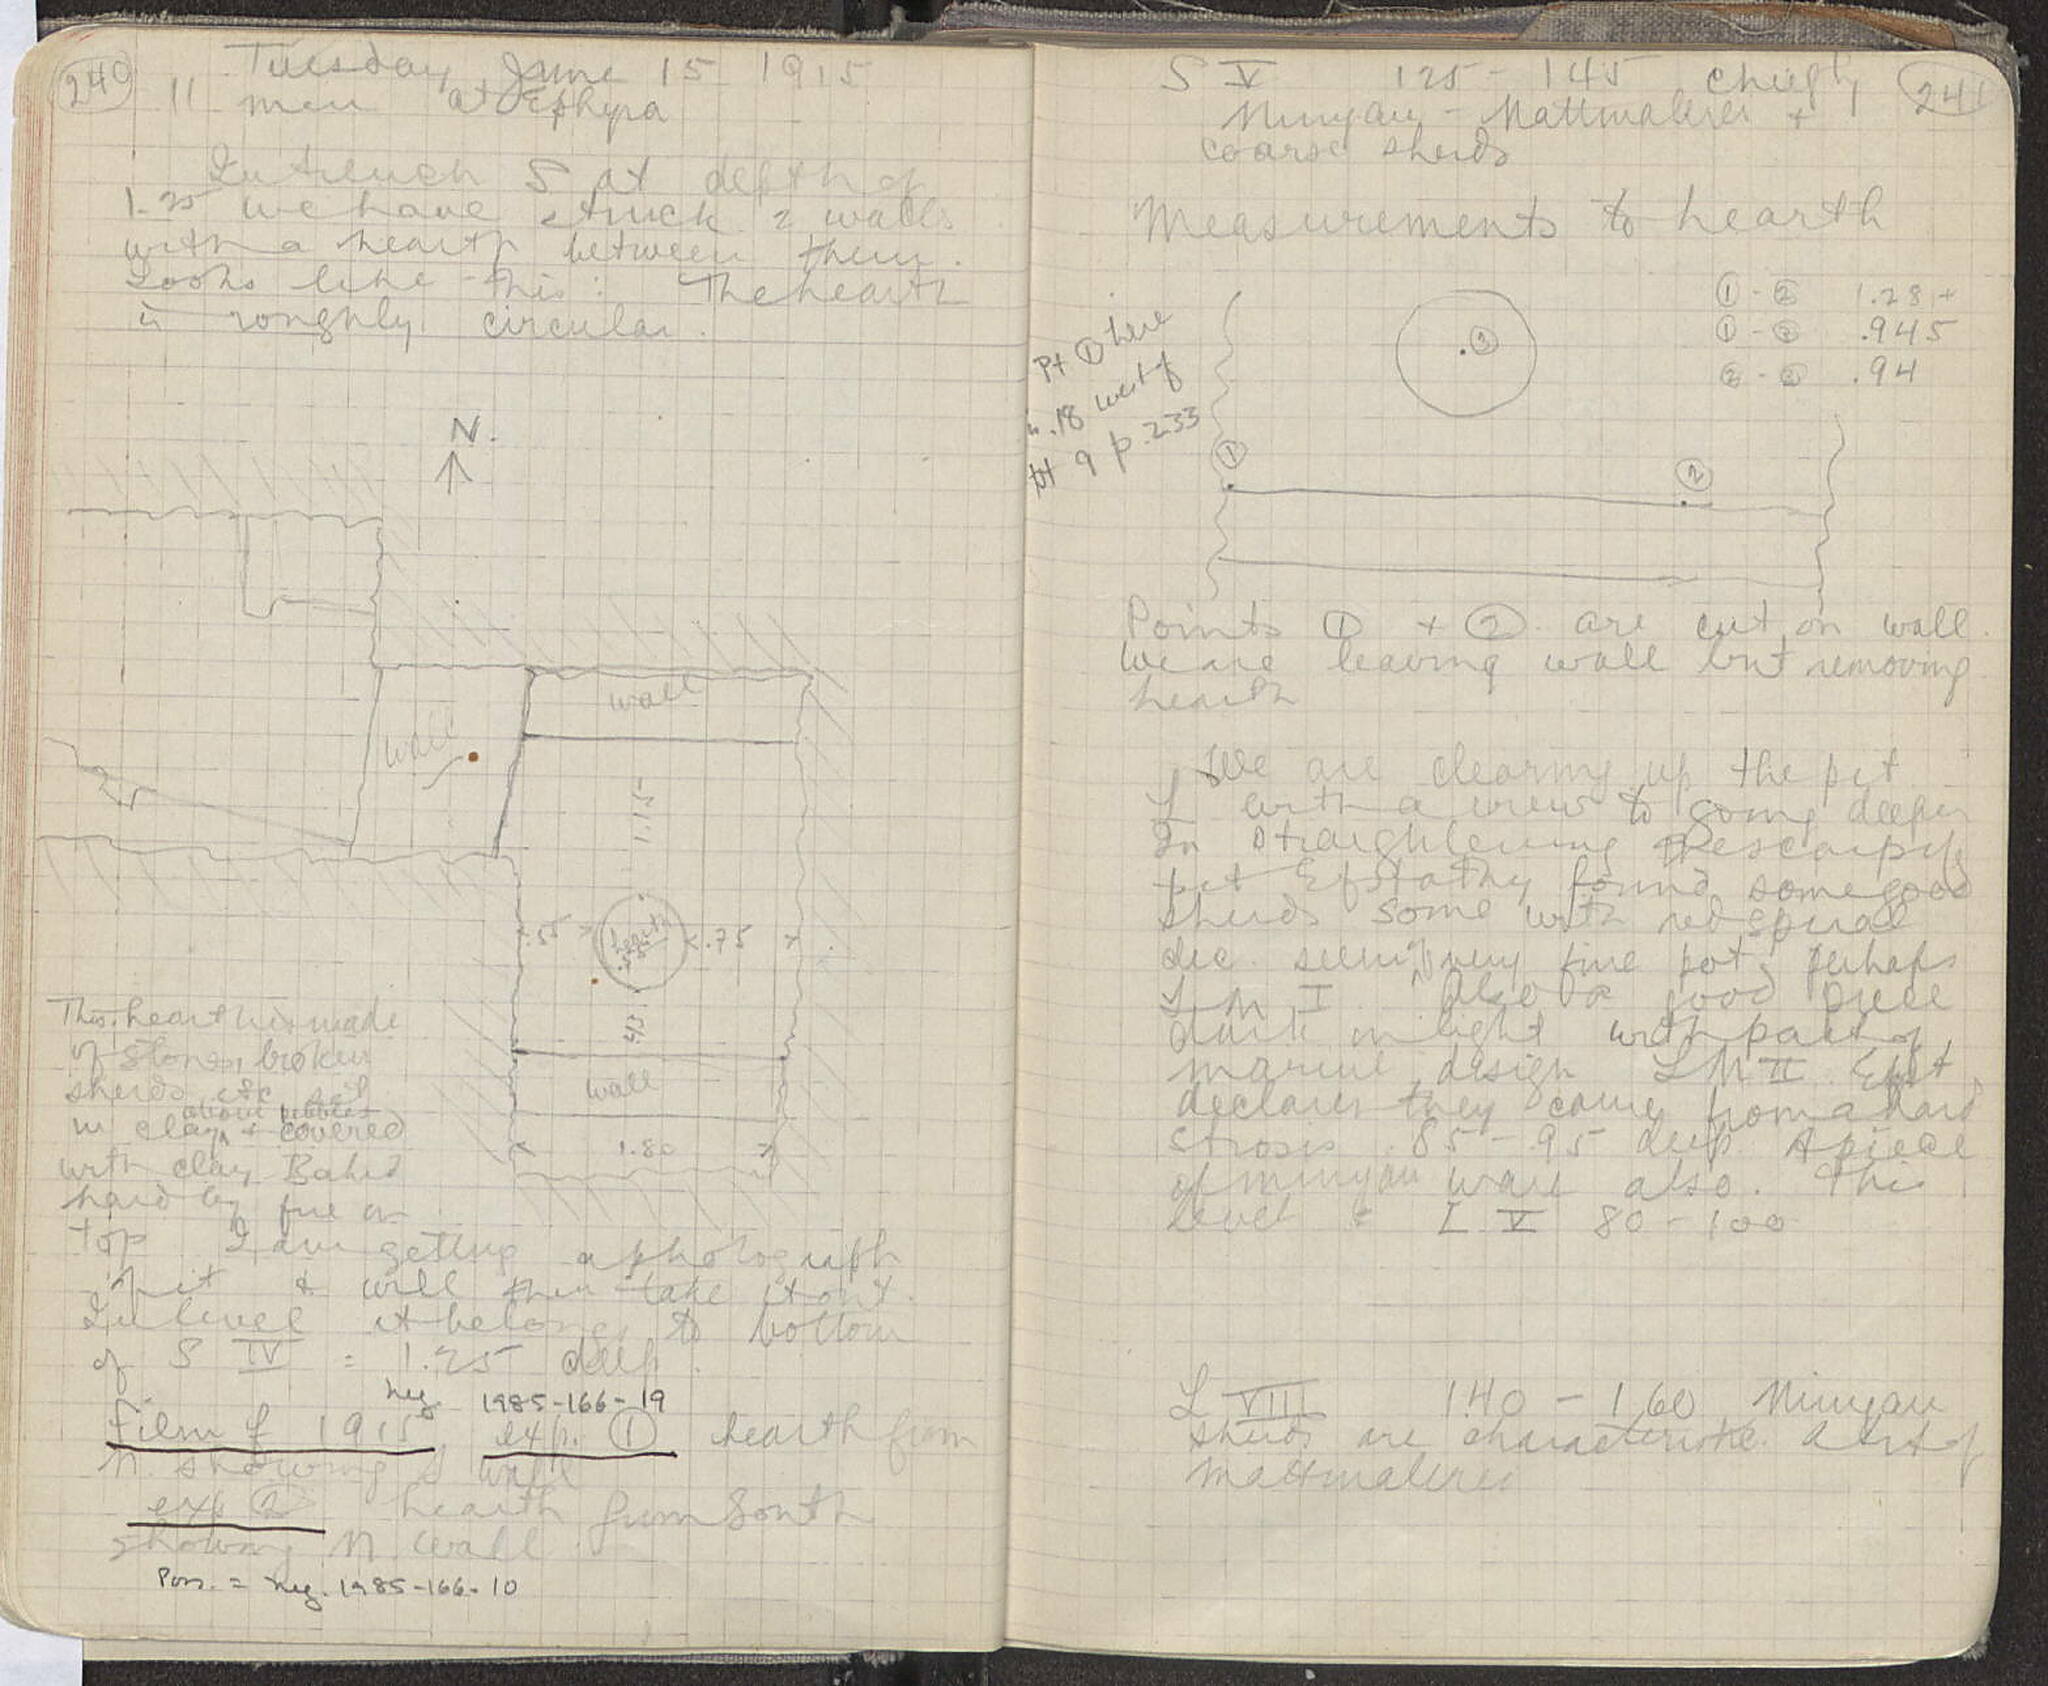 240
Tuesday June 15 1915
11 men at Ephyra
In trench S at depth of
1.25 we have struck 2 walls
with a hearth between them.
Looks like this: The hearth
is roughly circular.
N.
wall
wall
1.15
.55
hearth
.75
wall
1.80
This hearth is made
of stones, broken
sherds, etc set
above pebbles
in clay + covered
with clay Baked
hard by fire on
top I am getting a photograph
of it & will then take it out.
In level it belongs to bottom
of S IV = 1.25 deep.
neg. 1985-166-19
Film f 1915 exp. 1 hearth from
N. showing S wall
exp 2 hearth from South
showing N. wall
Poss. = neg. 1985-166-10
241
S V 125 - 145 chiefly
Minyan - Mattmalerei +
coarse sherds
Measurements to hearth
1 - 2 1.28 +
1 - 3 .945
2 - 3 .94
Pt 1 here
is .18 west of
pt 9 p. 233
3
1
2
Points 1 + 2 are cut on wall.
We are leaving wall but removing
hearth
We are clearing up the pit
L with a view to going deeper
In straightening the scarp of
pit Efstathy found some good
sherds some with red spiral
dec. seemingly very fine pot, perhaps
L M I. Also a good piece
dark on light with part of
marine design LM II Efst
declares they came from a hard
strosis .85 - .95 deep. A piece
of minyan ware also. This
level = L V 80 - 100
L VIII 1.40 - 1.60 Minyan
sherds are characteristic. A bit of
mattmalerei